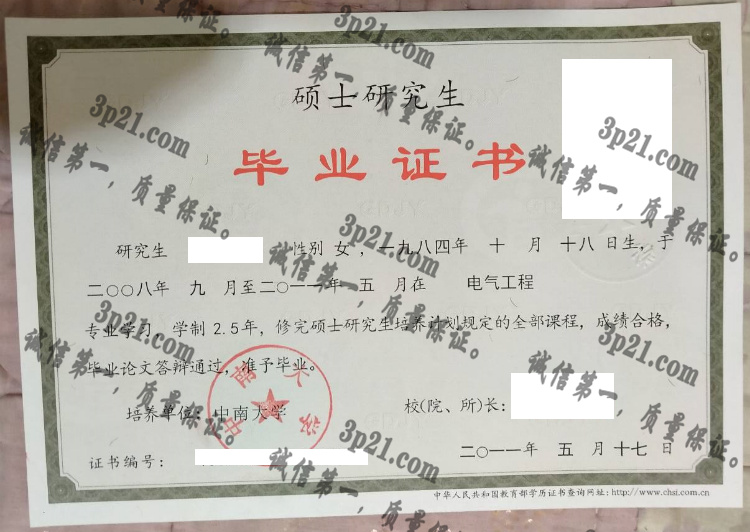 硕士研究生
毕业证书
研究生 性别 女 ，一九八四年 十 月 十八 日生，于
二〇〇八年 九 月至二〇一一年 五 月在 电气工程
专业学习，学制 2.5年，修完硕士研究生培养计划规定的全部课程，成绩合格，
毕业论文答辩通过，准予毕业。
培养单位：中南大学
校(院、所)长：
中南大学
证书编号：
二〇一一年 五 月 十七 日
中华人民共和国教育部学历证书查询网址：http://www.chsi.com.cn
3p21.com
诚信第一，质量保证。
3p21.com
诚信第一，质量保证。
3p21.com
诚信第一，质量保证。
3p21.com
诚信第一，质量保证。
3p21.com
诚信第一，质量保证。
3p21.com
诚信第一，质量保证。
3p21.com
诚信第一，质量保证。
3p21.com
诚信第一，质量保证。